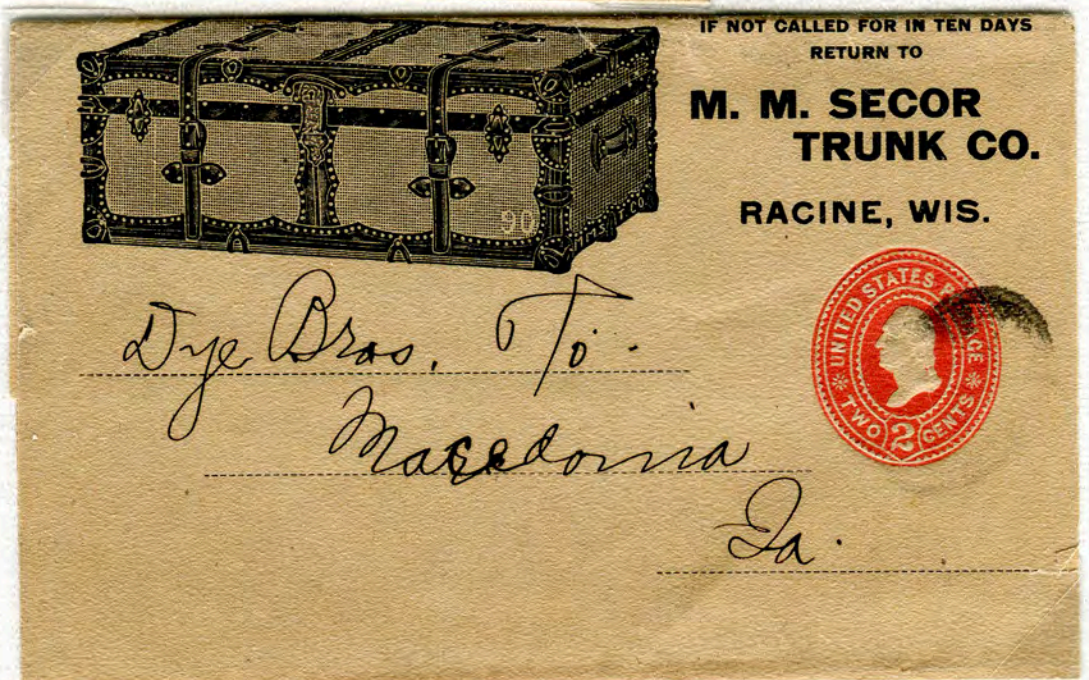 IF NOT CALLED FOR IN TEN DAYS
RETURN TO
M. M. SECOR
TRUNK CO.
RACINE, WIS.
90
UNITED STATES POSTAGE
TWO 2 CENTS
Dye Bros.
Macedonia
Ia.